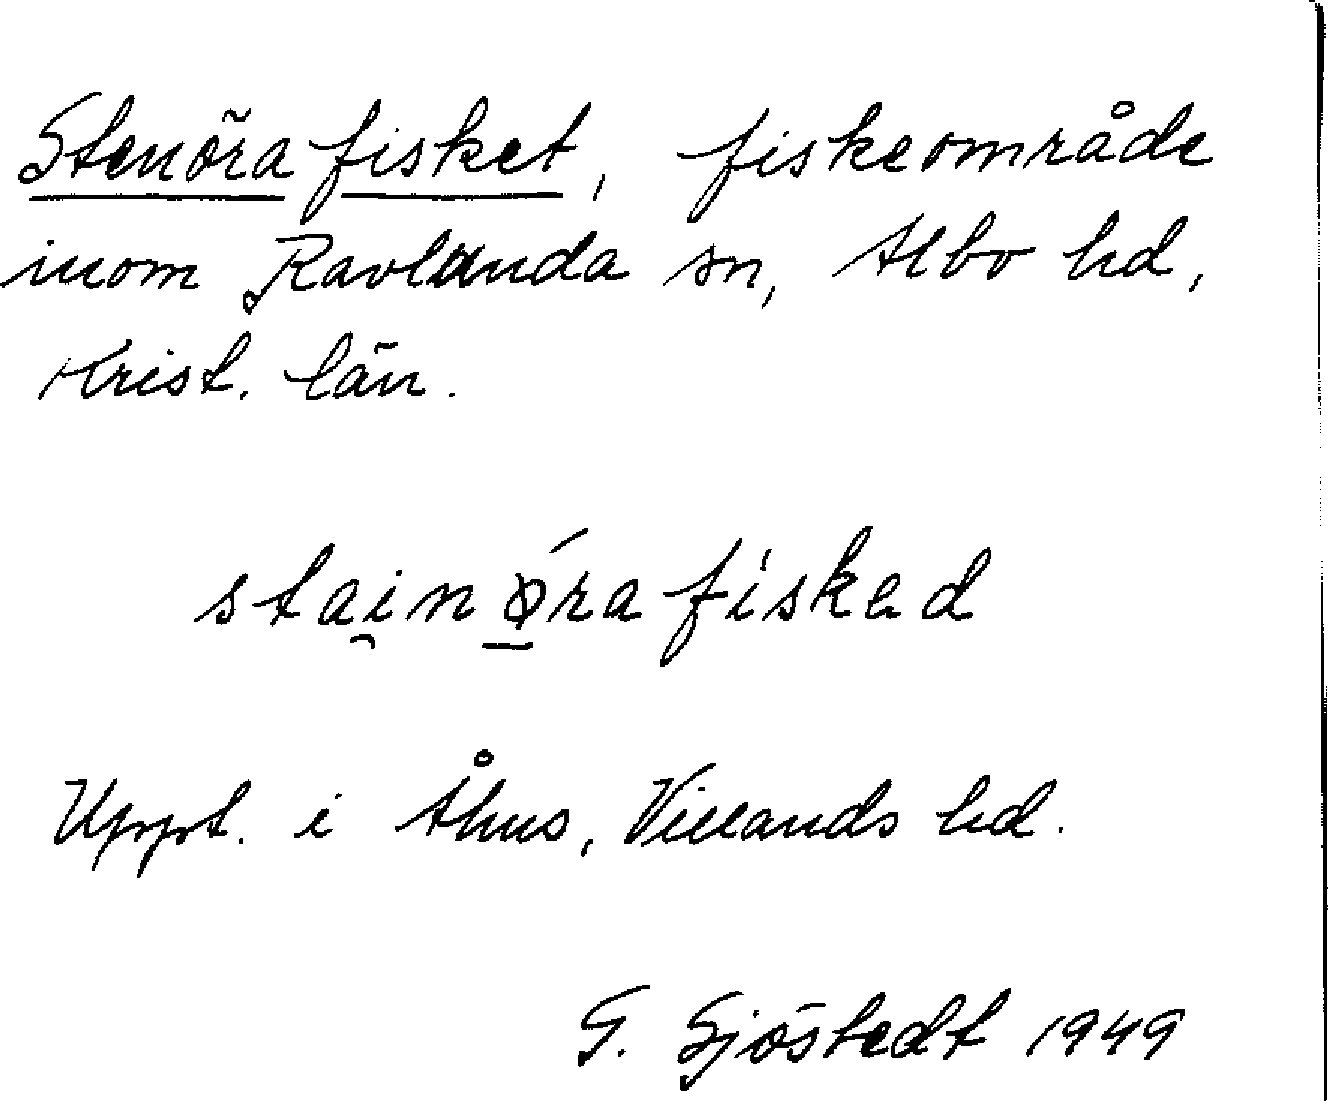 Stenöra fisket, fiskeområde
inom Ravlunda sn, Albo hd,
Krist. län.
stai̯nǿ̱rafisked
Uppt. i Åhus, Villands hd.
G. Sjöstedt 1949